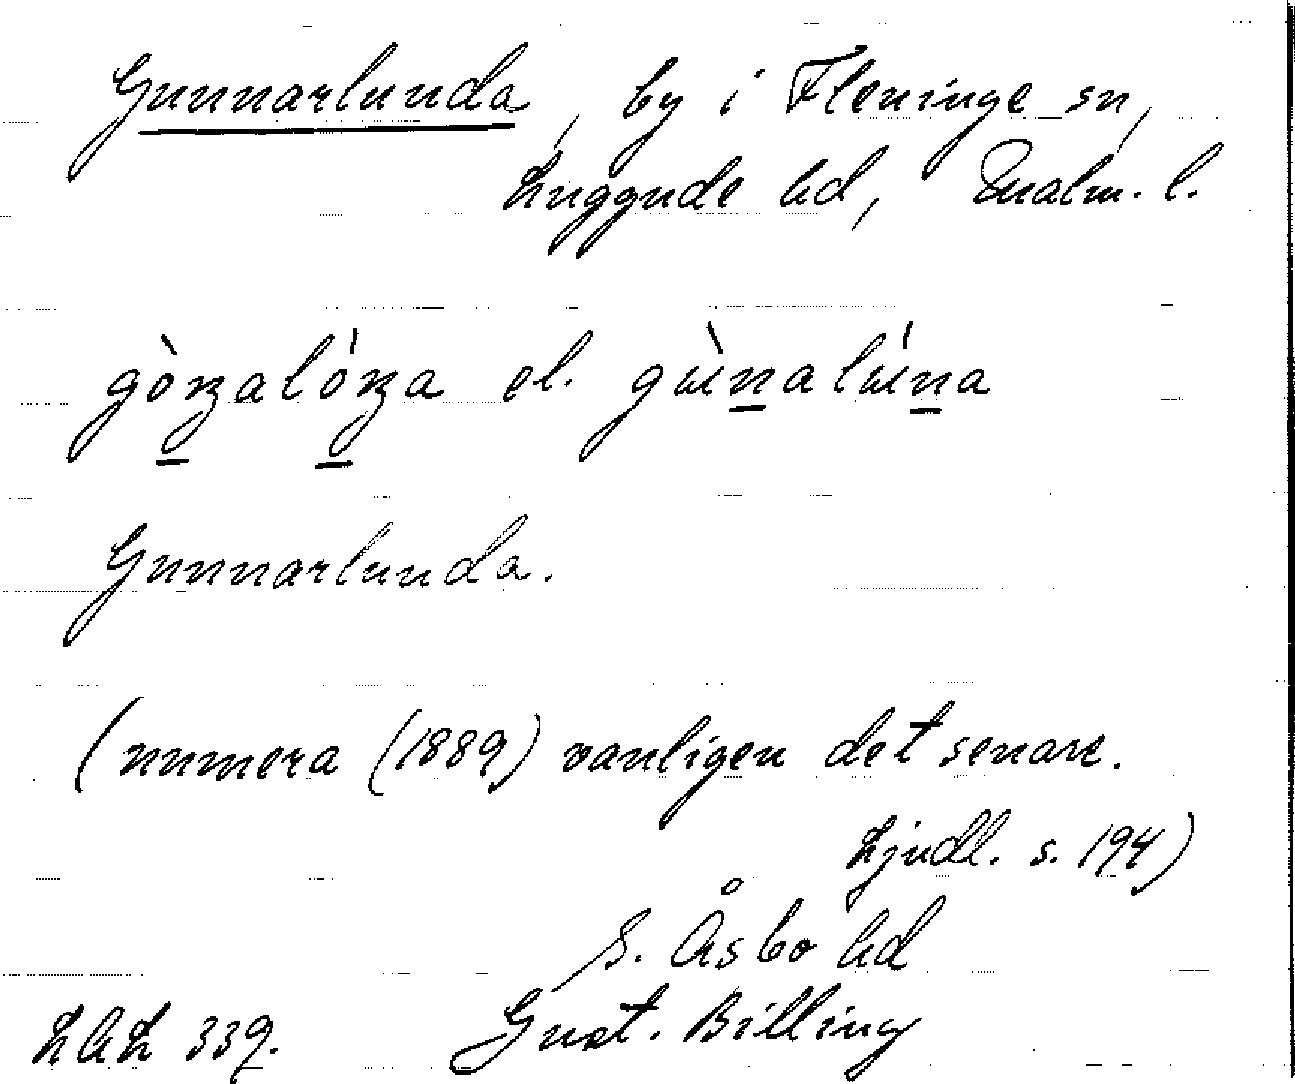 Gunnarlunda, by i Fleninge sn,
Luggude hd, Malm. l.
gòꞥalóꞥa el. gùnalúna
Gunnarlunda.
(numera (1889) vanligen det senare.
Ljudl. s. 194)
S. Åsbo hd
LAL 339. Gust. Billing